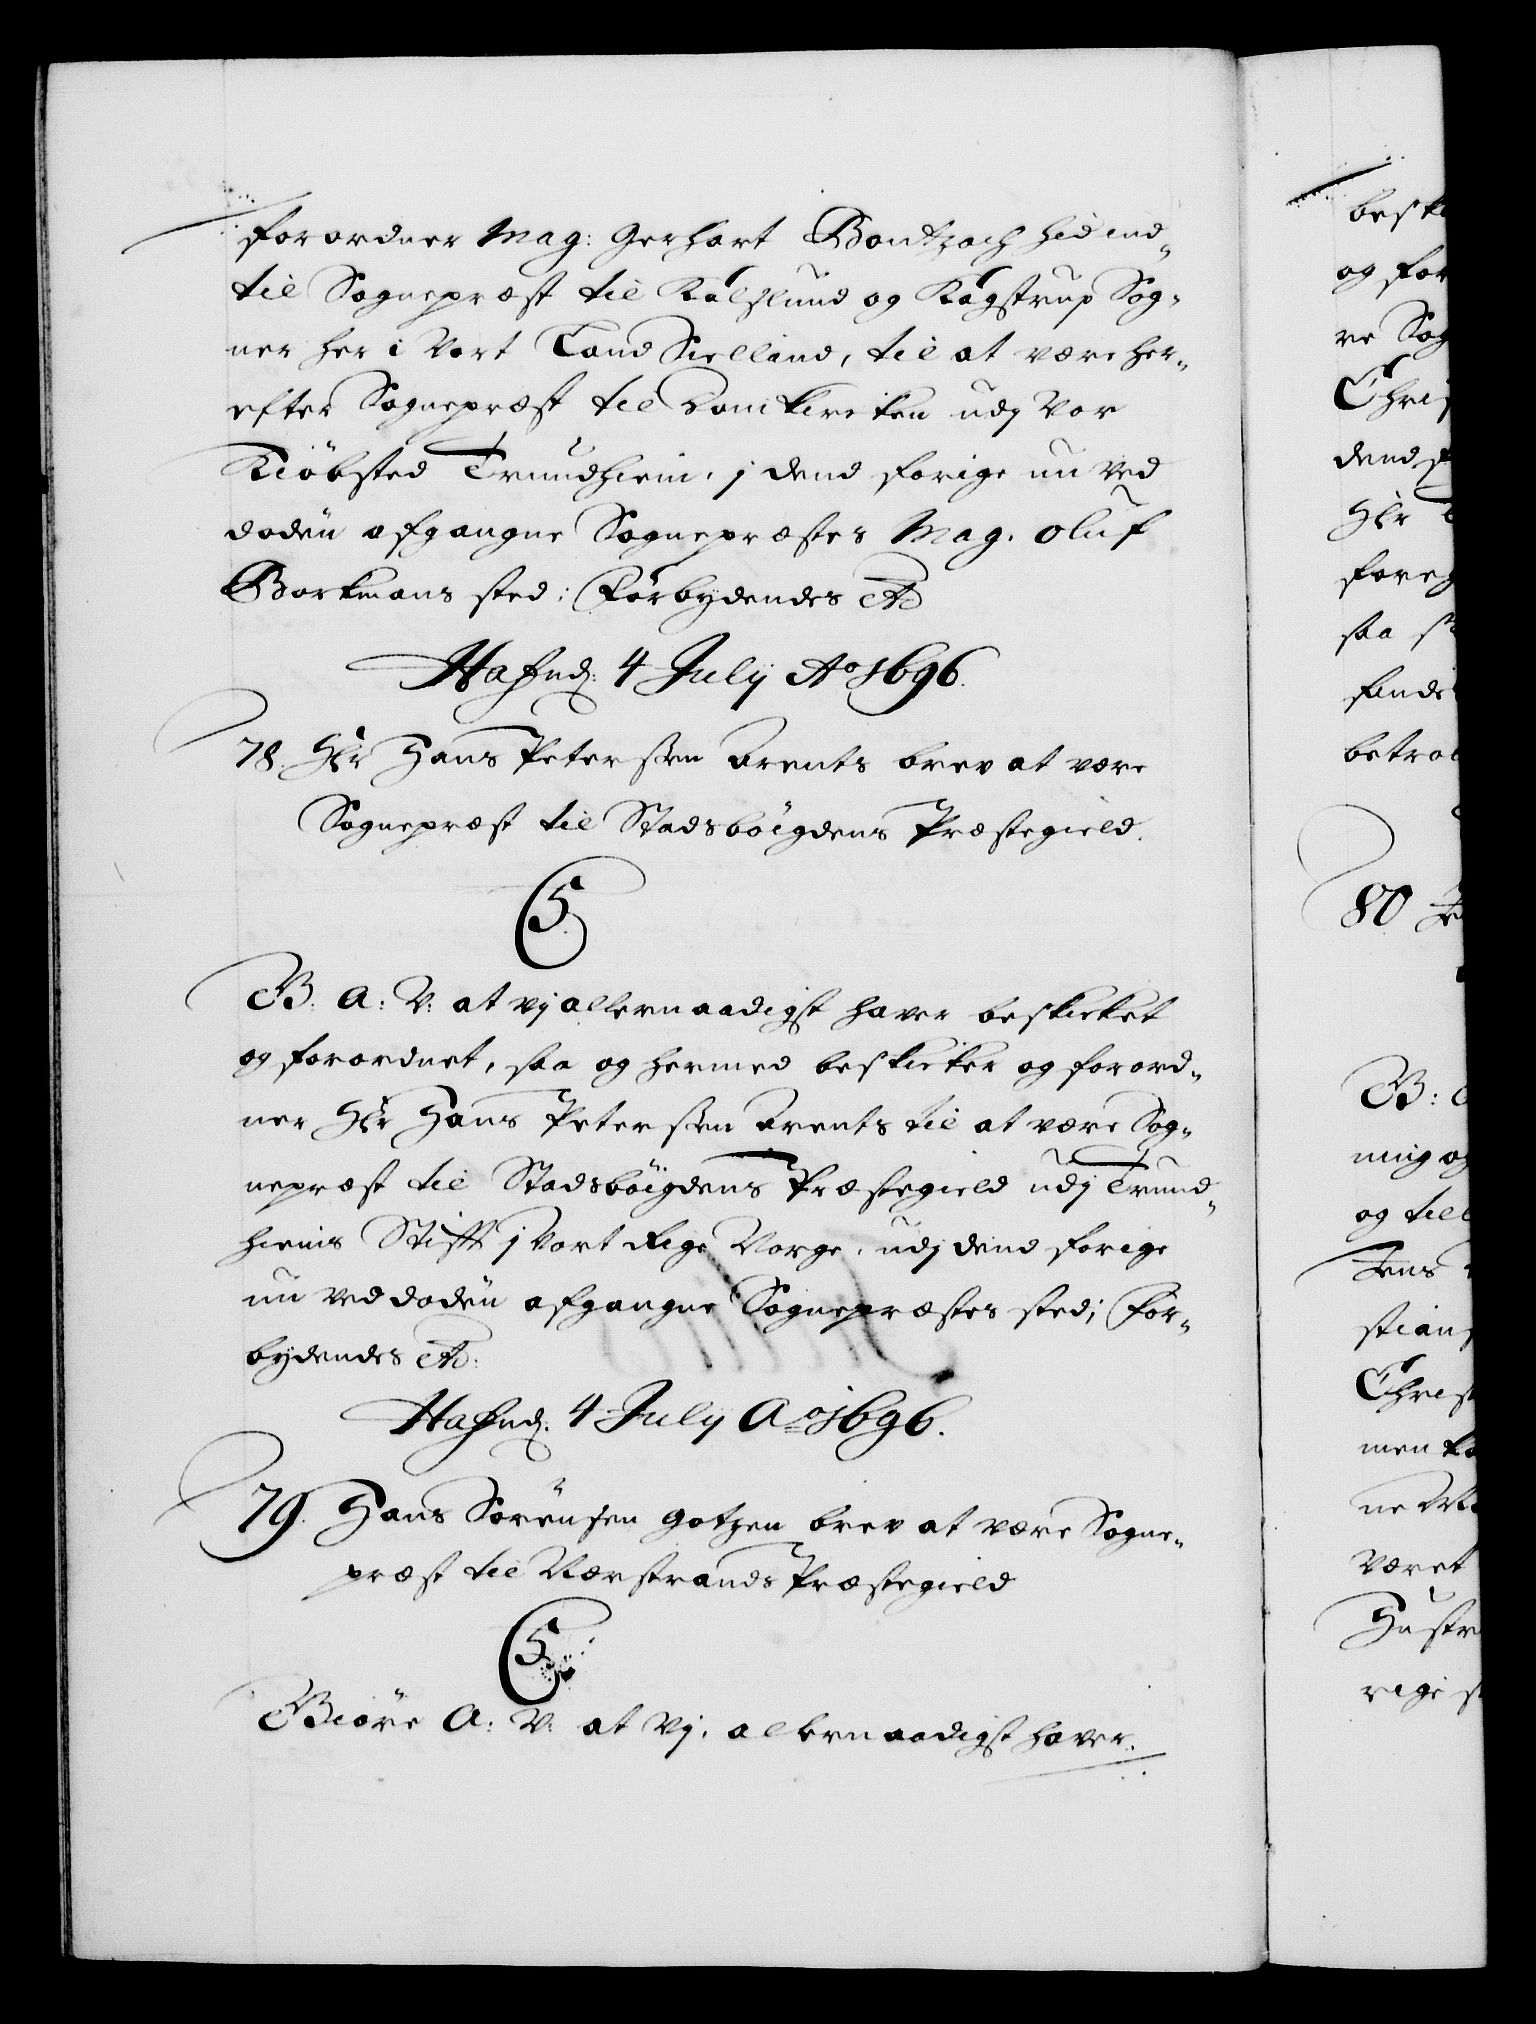 forordner Mag: Gerhart Bontzach hid ind„
til Sognepræst til Kalslund og Kagstrup Sog„
ner her i Vort Land Sielland, til at være her„
efter Sognepræst til Domkircken udj Vor
Kiöbsted Trundhiem, j dend forige nu ved
döden afgangne Sognepræstes Mag. Oluf
Borkmans sted; Forbydendes etc
Hafnd: 4 July Ao 1696.
78. Hr Hans Peterssen Arents brev at være
Sognepræst til Stadsböigdens Præstegield.
C5
B. A: V: at vj allernaadigst haver beskicket
og forordnet, saa og hermed beskicker og forord„
ner Hr Hans Peterssen Arents til at være Sog„
nepræst til Stadsböigdens Præstegield udj Trund„
hiems Stifft j Vort Rige Norge, udj dend forige
nu ved döden afgangne Sognepræstes sted; For„
bydendes etc:
Hafnd: 4 July Ao 1696.
79. Hans Sörensen Gotzen brev at være Sogne„
præst til Nærstrands Præstegield
C5
Giöre A: V: at Vj, allernaadigst haver.
beski
og for
re Sog
Chris
dend f
Hr
foreg
saa
finde
betro
80 Je
B:
ning og
og till
Jens
stians
Christ
men
ne
været
Hustr
rige